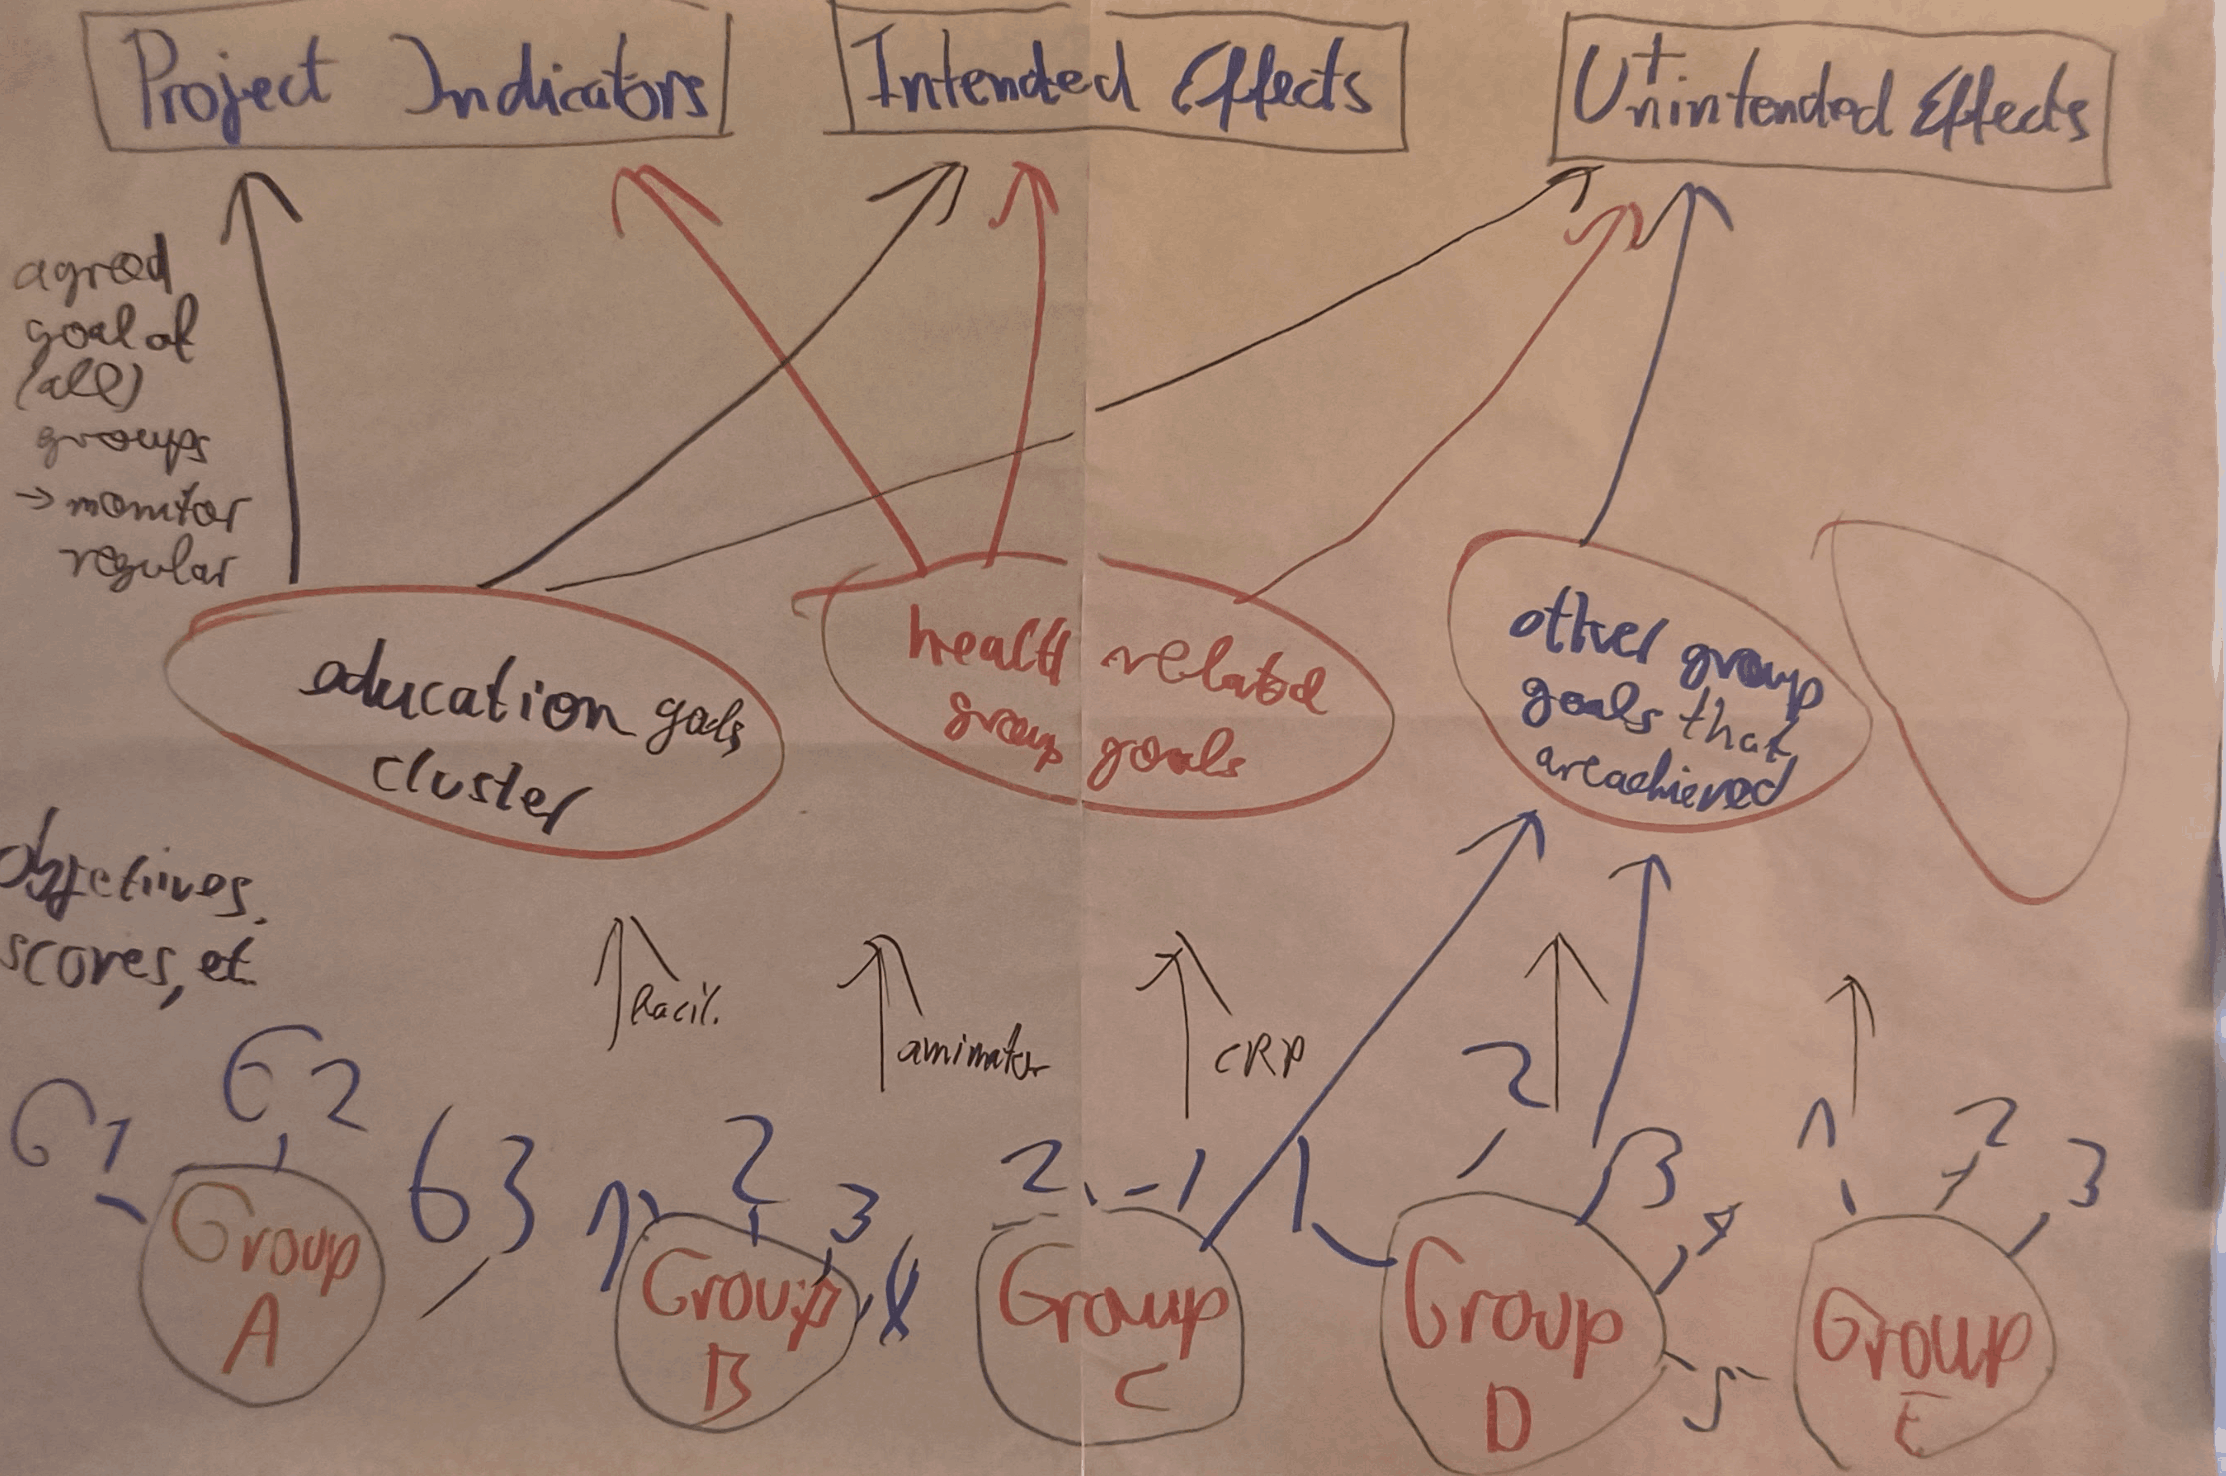 Project Indicators
Intended Effects
+
Unintended Effects
agreed
goal of
(all)
groups
→ monitor
regular
education goals
cluster
health related
group goals
other group
goals that
are achieved
objectives,
scores, et
facil.
animator
CRP
G1
G2
G3
1
2
3
4
2
1
1
2
3
4
5
1
2
3
Group
A
Group
B
Group
C
Group
D
Group
E